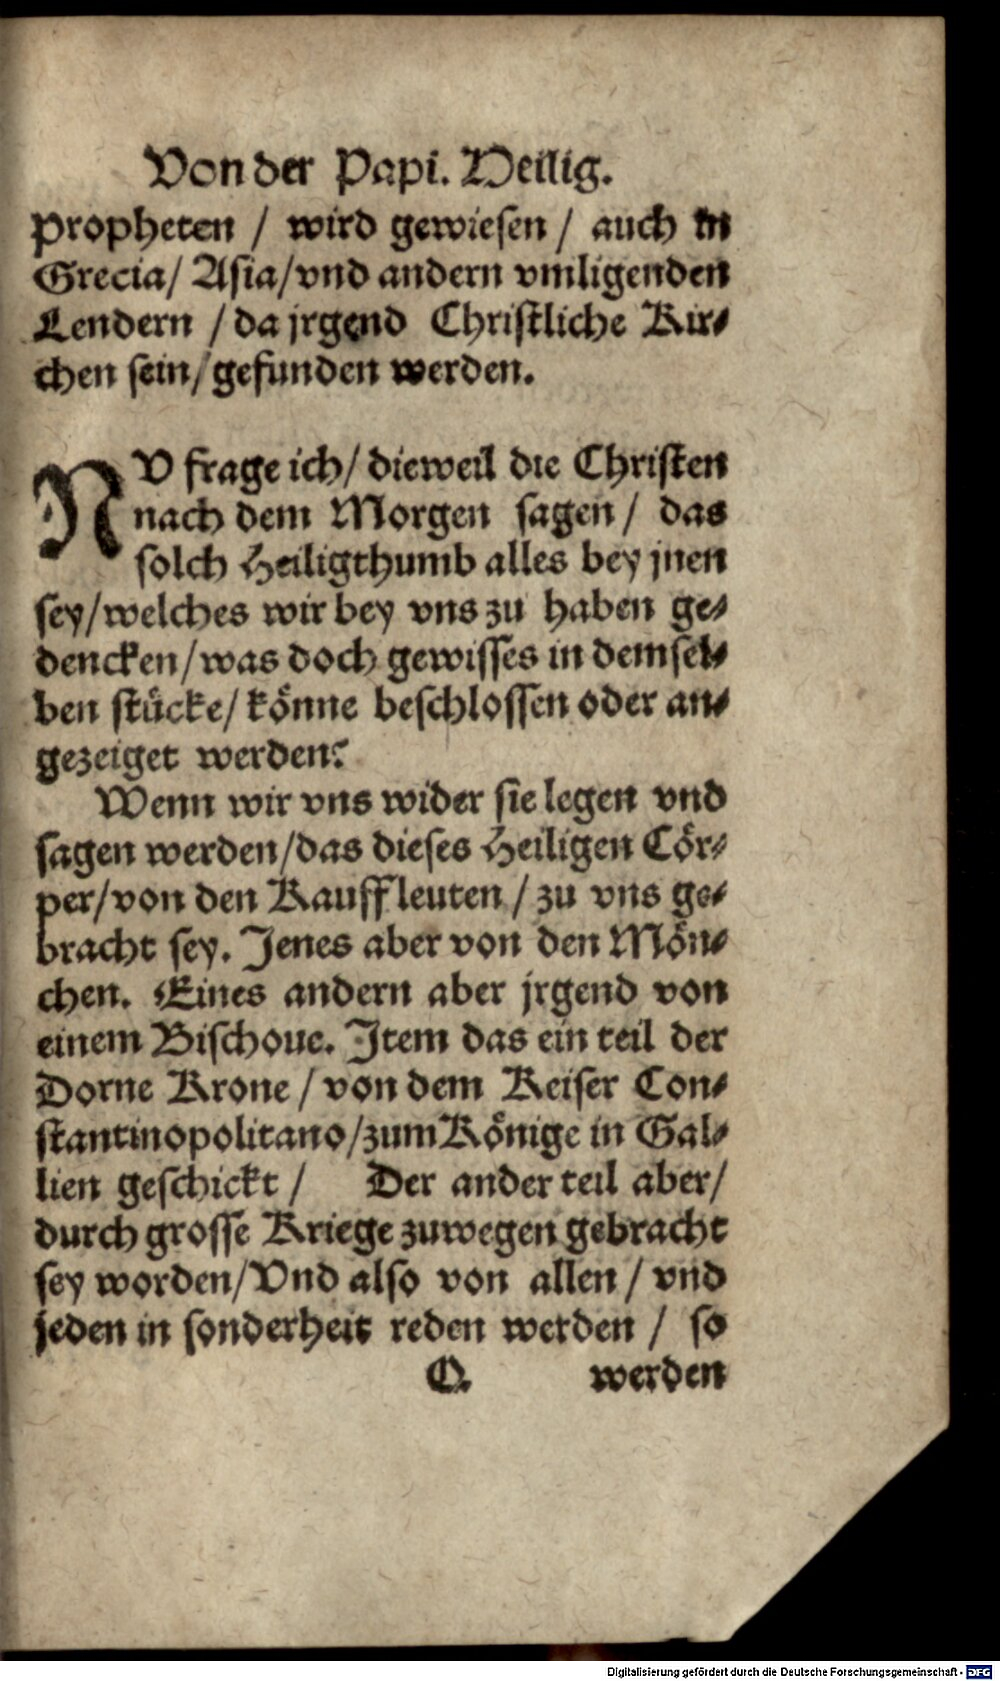 Von der Papi. Heilig.
Propheten / wird gewiesen / auch in
Grecia / Asia / vnd andern vmligenden
Lendern / da jrgend Christliche Kir⸗
chen sein / gefunden werden.
NV frage ich / dieweil die Christen
nach dem Morgen sagen / das
solch Heiligthumb alles bey jnen
sey / welches wir bey vns zu haben ge⸗
dencken / was doch gewisses in demsel⸗
ben stücke / könne beschlossen oder an⸗
gezeiget werden?
Wenn wir vns wider sie legen vnd
sagen werden / das dieses Heiligen Cör⸗
per / von den Kauffleuten / zu vns ge⸗
bracht sey. Jenes aber von den Mön⸗
chen. Eines andern aber jrgend von
einem Bischoue. Item das ein teil der
Dorne Krone / von dem Keiser Con⸗
stantinopolitano / zum Könige in Gal⸗
lien geschickt / Der ander teil aber /
durch grosse Kriege zuwegen gebracht
sey worden / Vnd also von allen / vnd
jeden in sonderheit reden werden / so
Q. werden
Digitalisierung gefördert durch die Deutsche Forschungsgemeinschaft - DFG